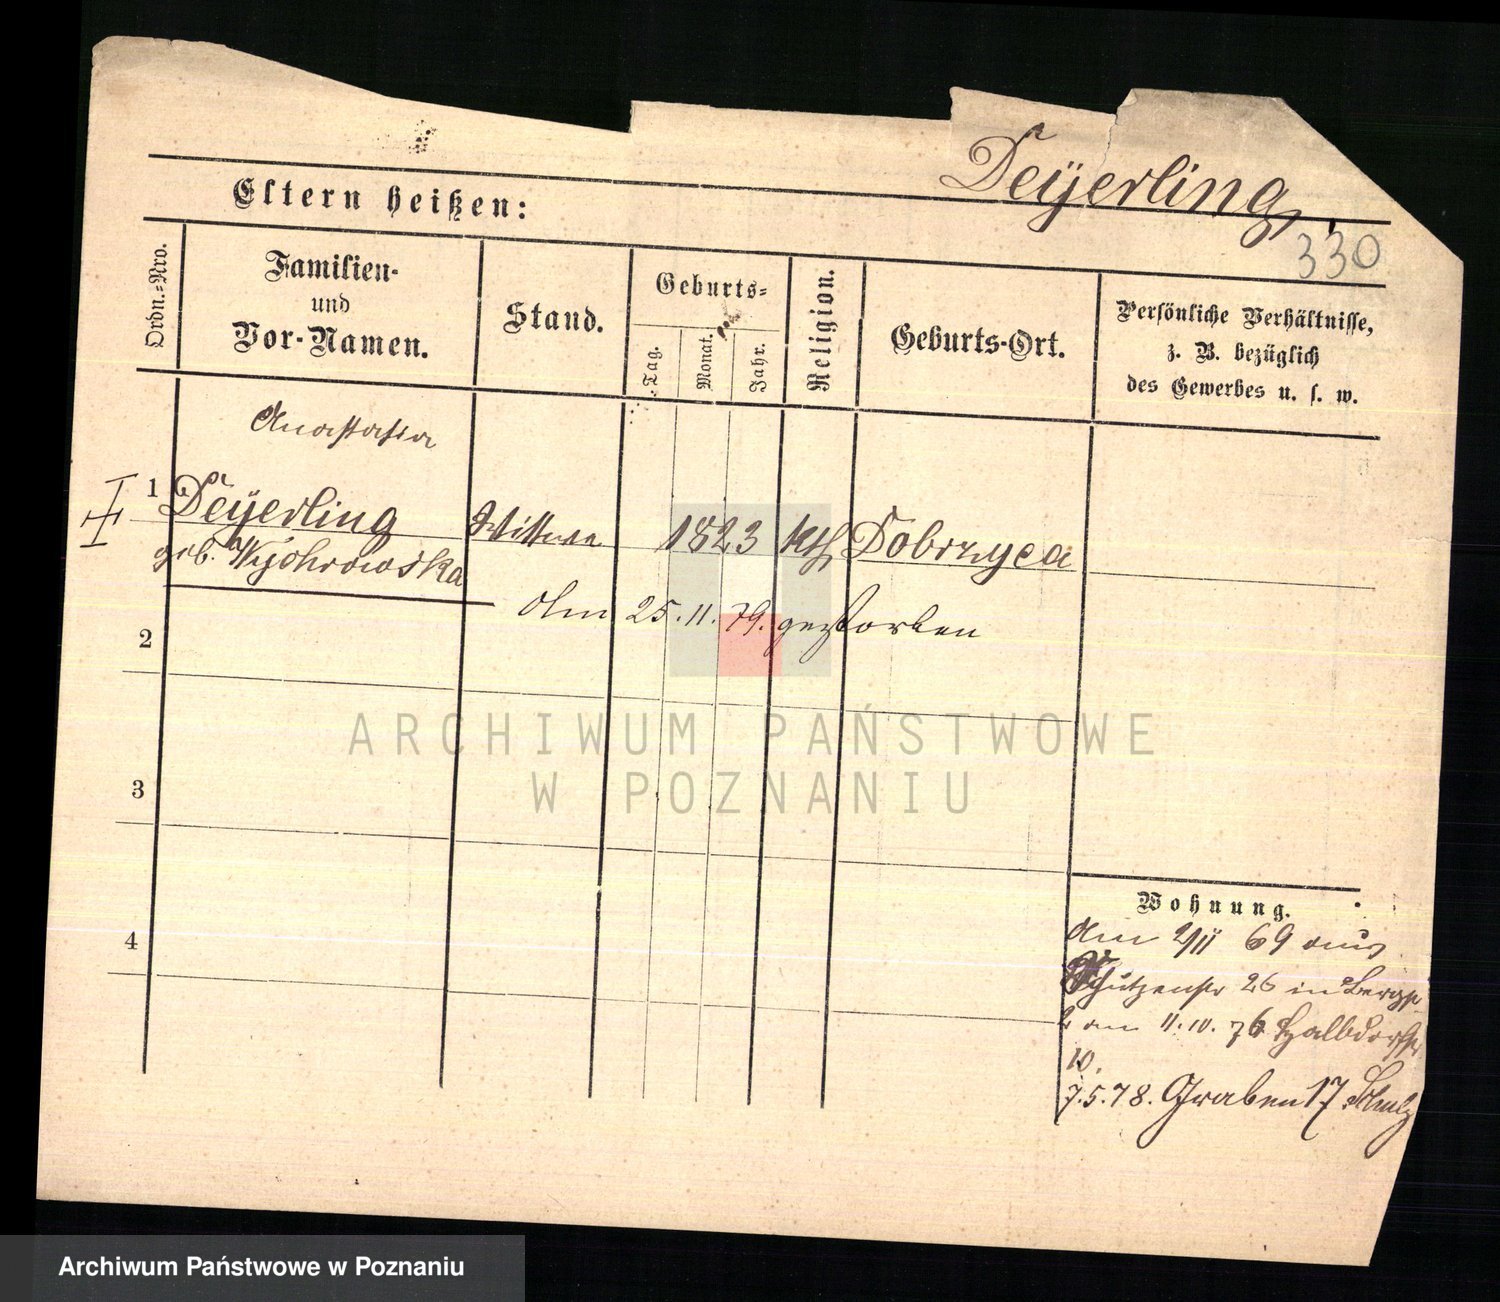 Deÿerling
Eltern heißen:
330
Ordn.-Nro.
Familien-
und
Vor-Namen.
Stand.
Geburts-
Tag.
Monat.
Jahr.
Religion.
Geburts-Ort.
Persönliche Verhältnisse,
z. B. bezüglich
des Gewerbes u. s. w.
Anastasia
1 Deÿerling Wittwe 1823 kth Dobrzyca
geb. Wychrowska
Am 25.11.79. gestorben
2
3
4
Wohnung.
Am 2/11 69 aus
Schützenstr 26 in Bergstr
am 11.10.76 Halbdorfstr
10.
7.5.78. Graben 17 Schulz
ARCHIWUM PAŃSTWOWE
W POZNANIU
Archiwum Państwowe w Poznaniu